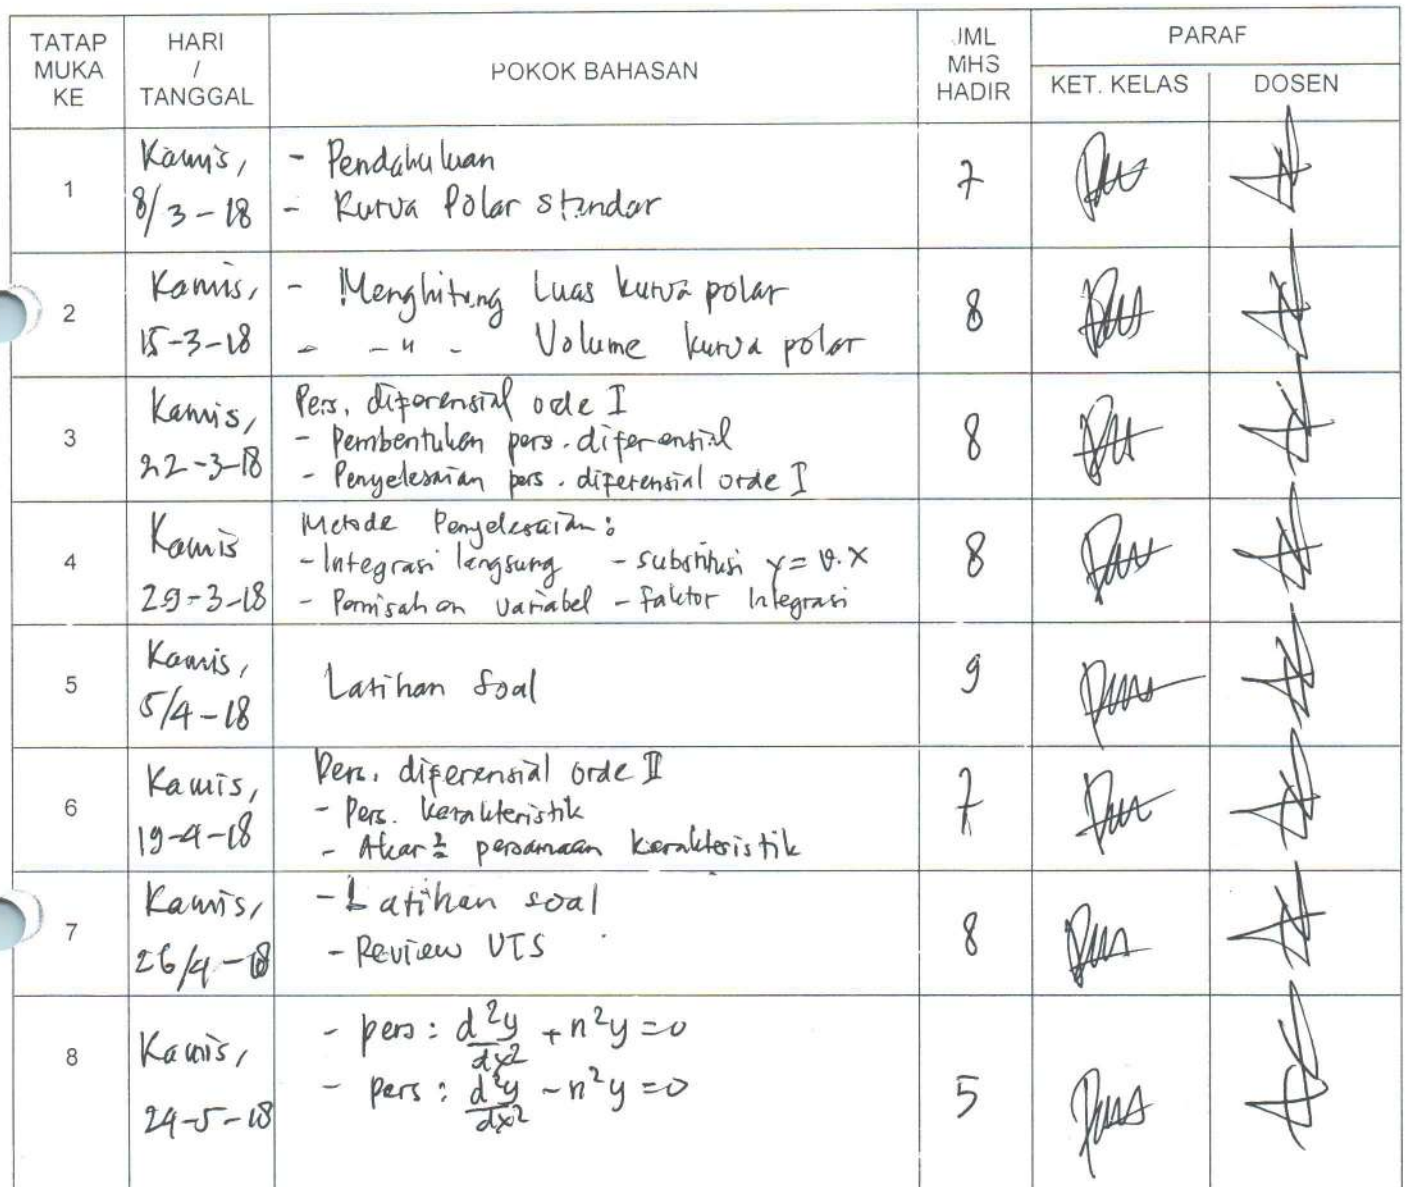 TATAP MUKA KE
HARI / TANGGAL
POKOK BAHASAN
JML MHS HADIR
PARAF
KET. KELAS
DOSEN
1
Kamis,
8/3-18
- Pendahuluan
- Kurva Polar standar
7
2
Kamis,
15-3-18
- Menghitung Luas kurva polar
- - " - Volume kurva polar
8
3
Kamis,
22-3-18
Pers. diferensial orde I
- Pembentukan pers. diferensial
- Penyelesaian pers. diferensial orde I
8
4
Kamis
29-3-18
Metode Penyelesaian:
- Integrasi langsung - substitusi y = v.x
- Pemisahan variabel - faktor Integrasi
8
5
Kamis,
5/4-18
Latihan Soal
9
6
Kamis,
19-4-18
Pers. diferensial orde II
- Pers. karakteristik
- Akar² persamaan karakteristik
7
7
Kamis,
26/4-18
- Latihan soal
- Review UTS
8
8
Kamis,
24-5-18
- pers : d²y/dx² + n²y = 0
- pers : d²y/dx² - n²y = 0
5